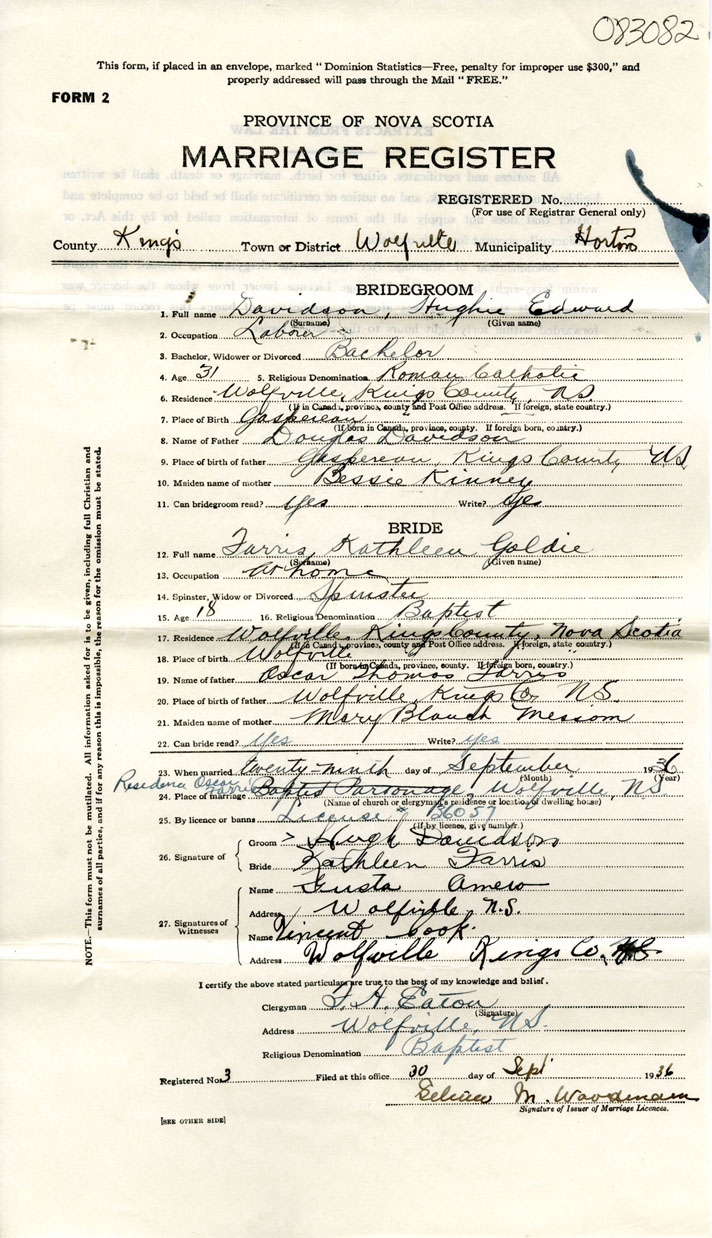 083082
This form, if placed in an envelope, marked " Dominion Statistics—Free, penalty for improper use $300," and
properly addressed will pass through the Mail " FREE."
FORM 2
PROVINCE OF NOVA SCOTIA
MARRIAGE REGISTER
REGISTERED No.
(For use of Registrar General only)
County Kings Town or District Wolfville Municipality Horton
BRIDEGROOM
1. Full name Davidson, Hughie Edward
(Surname) (Given name)
2. Occupation Laborer
3. Bachelor, Widower or Divorced Bachelor
4. Age 31 5. Religious Denomination Roman Catholic
6. Residence Wolfville, Kings County, N.S.
(If in Canada, province, county and Post Office address. If foreign, state country.)
7. Place of Birth Gaspereau
(If born in Canada, province, county. If foreign born, country.)
8. Name of Father Douglas Davidson
9. Place of birth of father Gaspereau Kings County N.S.
10. Maiden name of mother Bessie Kinney
11. Can bridegroom read? Yes Write? Yes
BRIDE
12. Full name Farris, Kathleen Goldie
(Surname) (Given name)
13. Occupation At home
14. Spinster, Widow or Divorced Spinster
15. Age 18 16. Religious Denomination Baptist
17. Residence Wolfville, Kings County, Nova Scotia
(If in Canada, province, county and Post Office address. If foreign, state country.)
18. Place of birth Wolfville
(If born in Canada, province, county. If foreign born, country.)
19. Name of father Oscar Thomas Farris
20. Place of birth of father Wolfville, Kings Co, N.S.
21. Maiden name of mother Mary Messom
22. Can bride read? Yes Write? yes
23. When married twenty-ninth day of September 1936
(Month) (Year)
Residence Oscar Farris
24. Place of marriage Baptist Parsonage, Wolfville, N.S.
(Name of church or clergyman's residence or location of dwelling house)
25. By licence or banns License # B6059
(If by licence, give number.)
26. Signature of Groom Hugh Davidson
Bride Kathleen Farris
27. Signatures of Witnesses
Name Gusta Amero
Address Wolfville, N.S.
Name Vincent Cook.
Address Wolfville Kings Co, N.S.
I certify the above stated particulars are true to the best of my knowledge and belief.
Clergyman Eaton
(Signature)
Address Wolfville, N.S.
Religious Denomination Baptist
Registered No. 3 Filed at this office 30 day of Sept 1936
M. Woodman
Signature of Issuer of Marriage Licences.
[SEE OTHER SIDE]
NOTE.—This form must not be mutilated. All information asked for is to be given, including full Christian and
surnames of all parties, and if for any reason this is impossible, the reason for the omission must be stated.